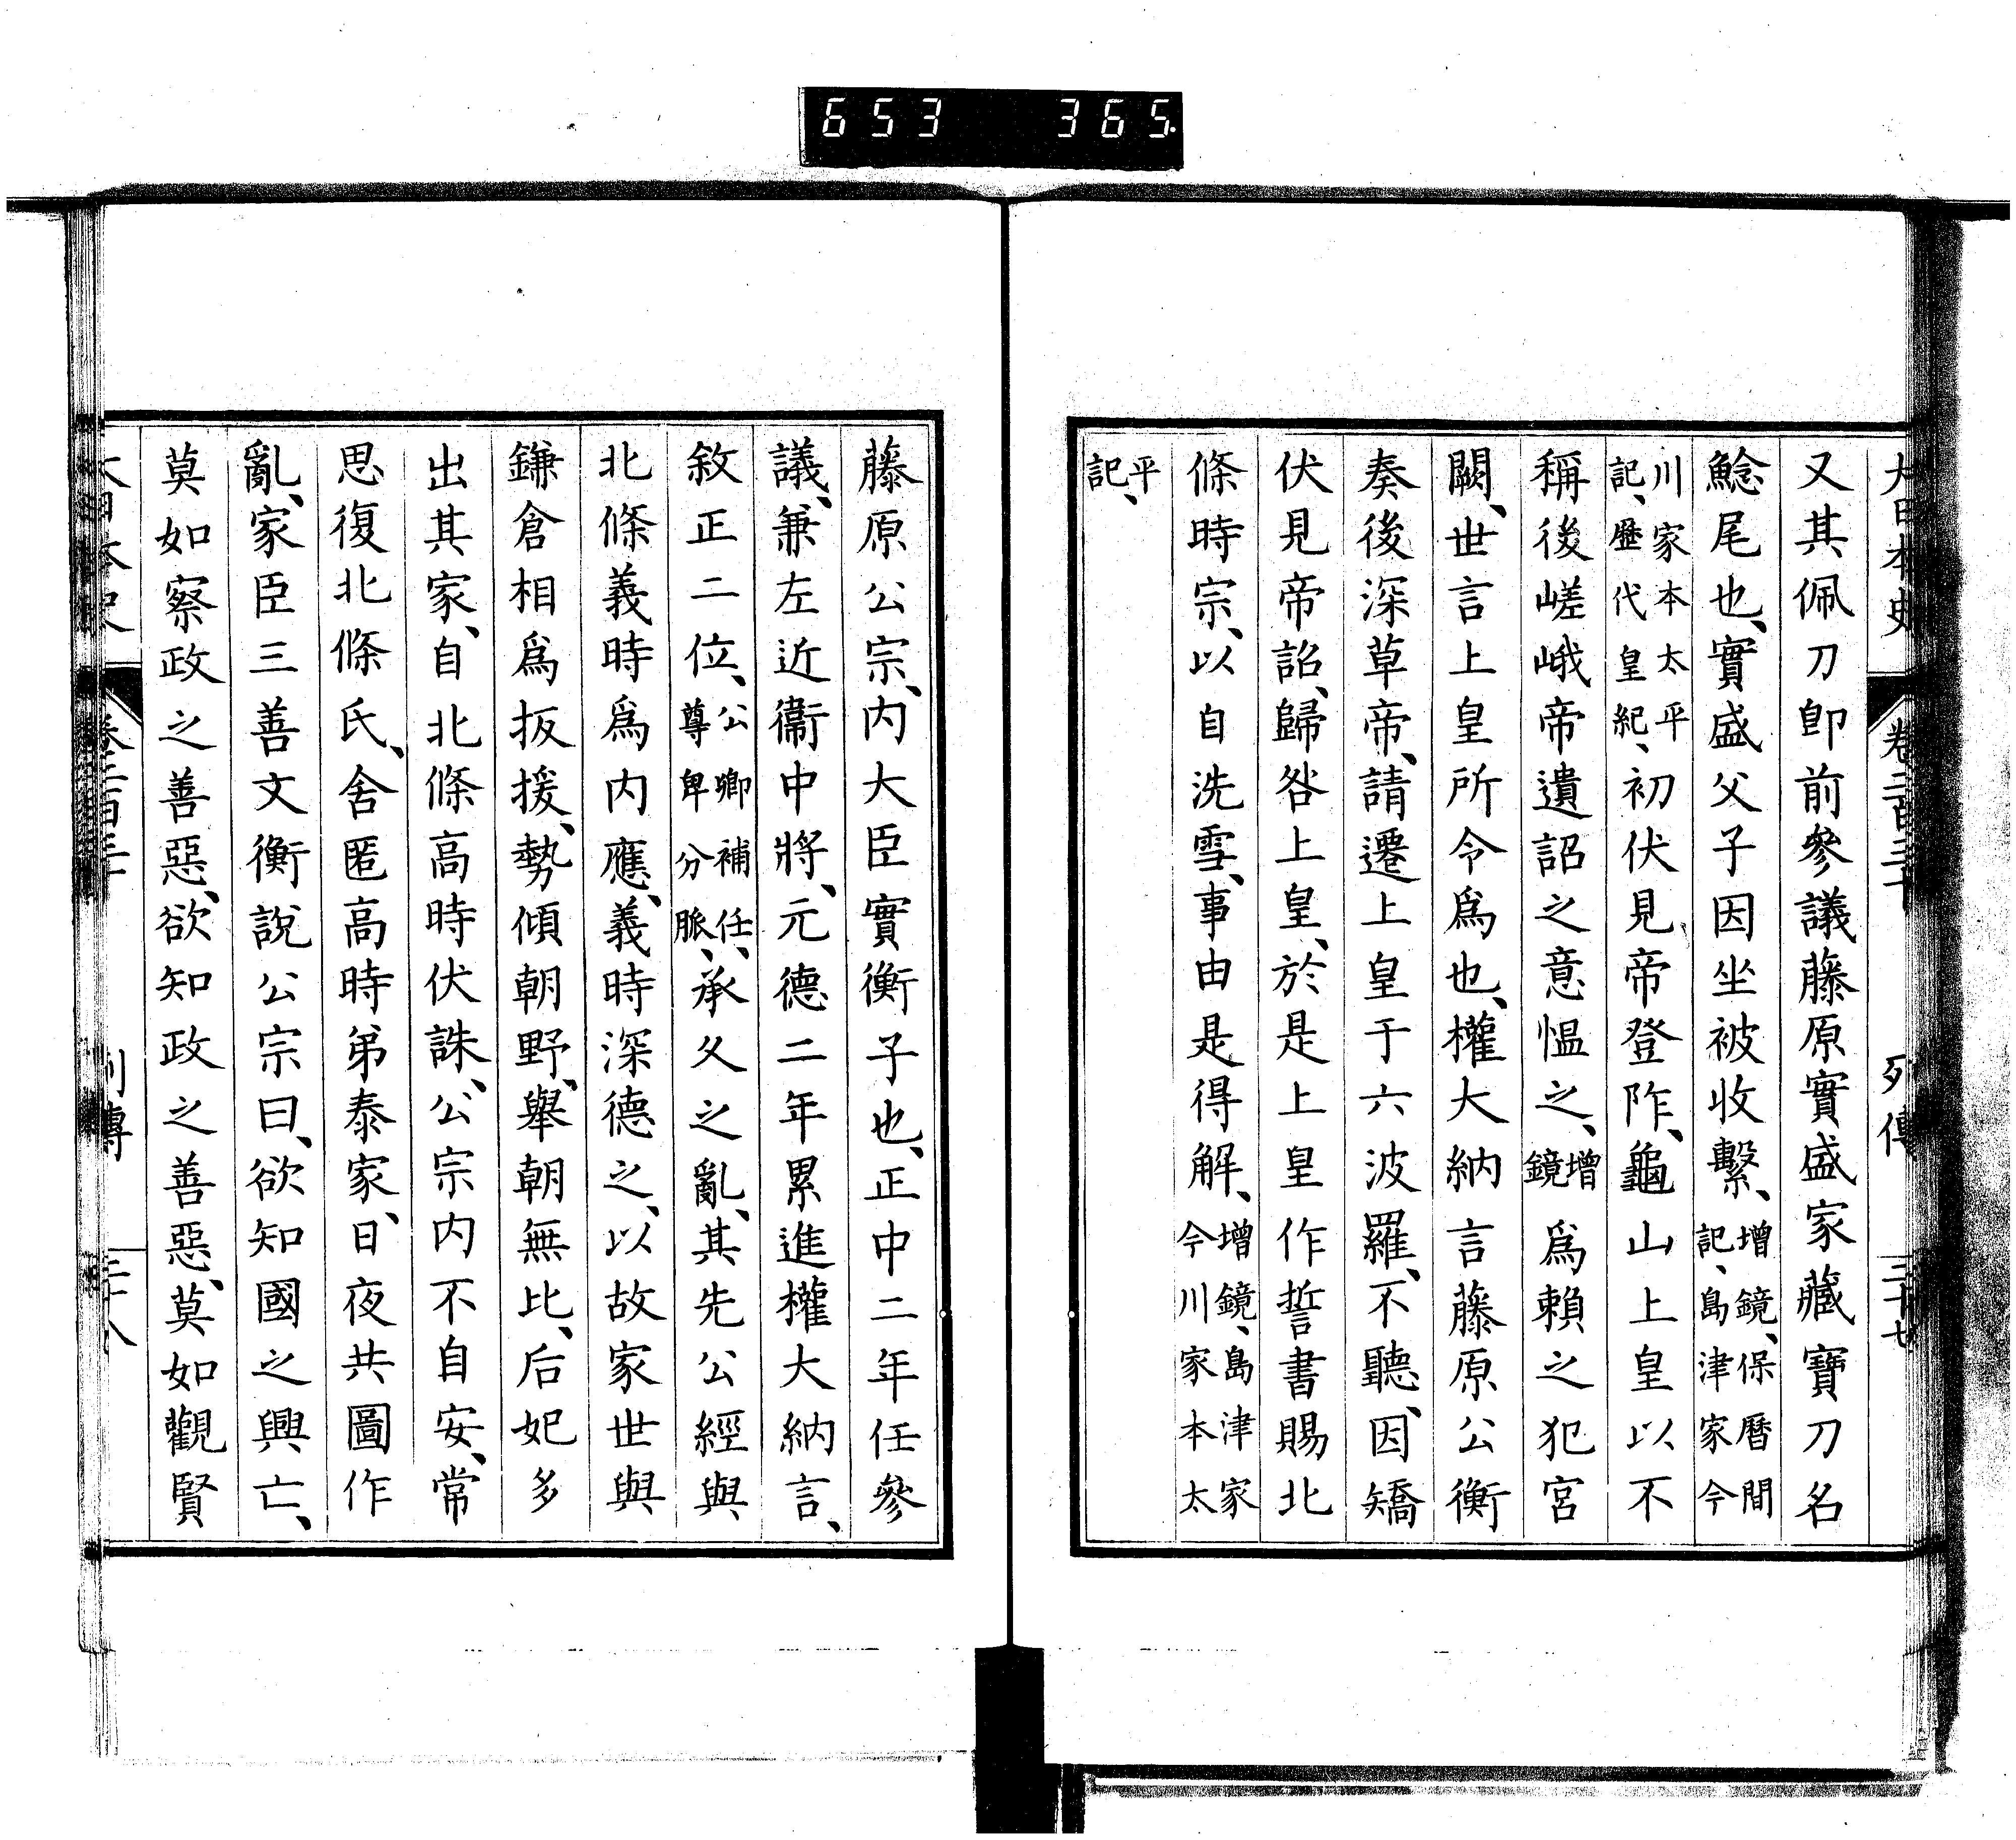 653 365
大日本史 卷二百三十 列傳 三十七
又其佩刀卽前參議藤原實盛家藏寶刀名
鯰尾也、實盛父子因坐被收繫、增鏡、保曆間記、島津家今
川家本太平記、歷代皇紀、初伏見帝登阼、龜山上皇以不
稱後嵯峨帝遺詔之意慍之、增鏡爲賴之犯宮
闕、世言上皇所令爲也、權大納言藤原公衡
奏後深草帝、請遷上皇于六波羅、不聽、因矯
伏見帝詔、歸咎上皇、於是上皇作誓書賜北
條時宗、以自洗雪、事由是得解、增鏡、島津家今川家本太
平記、
藤原公宗、内大臣實衡子也、正中二年任參
議、兼左近衞中將、元德二年累進權大納言、
敘正二位、公卿補任、尊卑分脈、承久之亂、其先公經與
北條義時爲内應、義時深德之、以故家世與
鎌倉相爲扳援、勢傾朝野、舉朝無比、后妃多
出其家、自北條高時伏誅、公宗内不自安、常
思復北條氏、舍匿高時弟泰家、日夜共圖作
亂、家臣三善文衡說公宗曰、欲知國之興亡、
莫如察政之善惡、欲知政之善惡、莫如觀賢
大日本史 卷二百三十 列傳 三十八